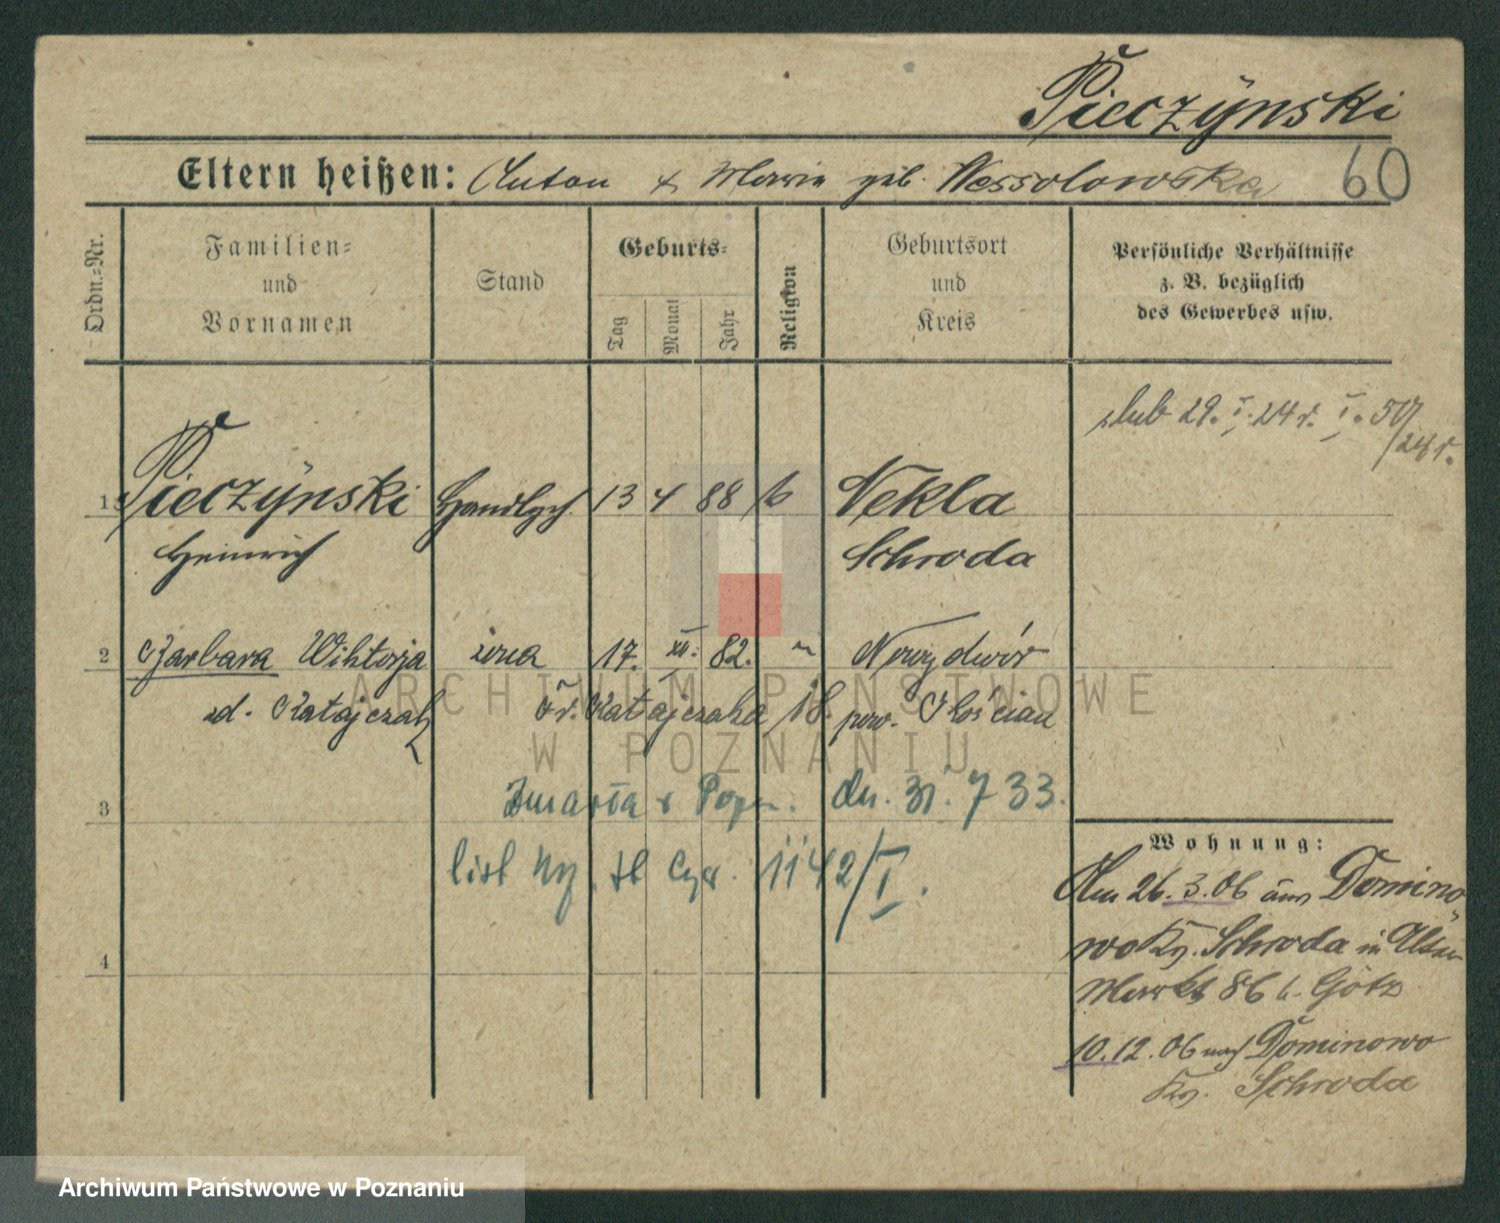 Pieczÿnski
Eltern heißen: Anton & Maria geb. Wessolowska 60
Ordn.-Nr.
Familien-
und
Vornamen
Stand
Geburts-
Tag
Monat
Jahr
Religion
Geburtsort
und
Kreis
Persönliche Verhältnisse
z. B. bezüglich
des Gewerbes usw.
ślub 29. I. 24 r. I. 50/24 r.
1 Pieczÿnski Handlgsh. 13 4 88 k Nekla
Heinrich Schroda
2 Barbara Wiktorja żona 17. XI. 82. " Nowydwór
zd. Ratajczak Fr. Ratajczaka 18. pow. Kościan
3 Zmarła w Pozn. dn. 31. 7 33.
1142/I.
4
Wohnung:
Am 26.3.06 aus Domino-
wo Kr. Schroda in Alten
Markt 86 b. Götz
10.12.06 nach Dominowo
Kr. Schroda
ARCHIWUM PAŃSTWOWE
W POZNANIU
Archiwum Państwowe w Poznaniu